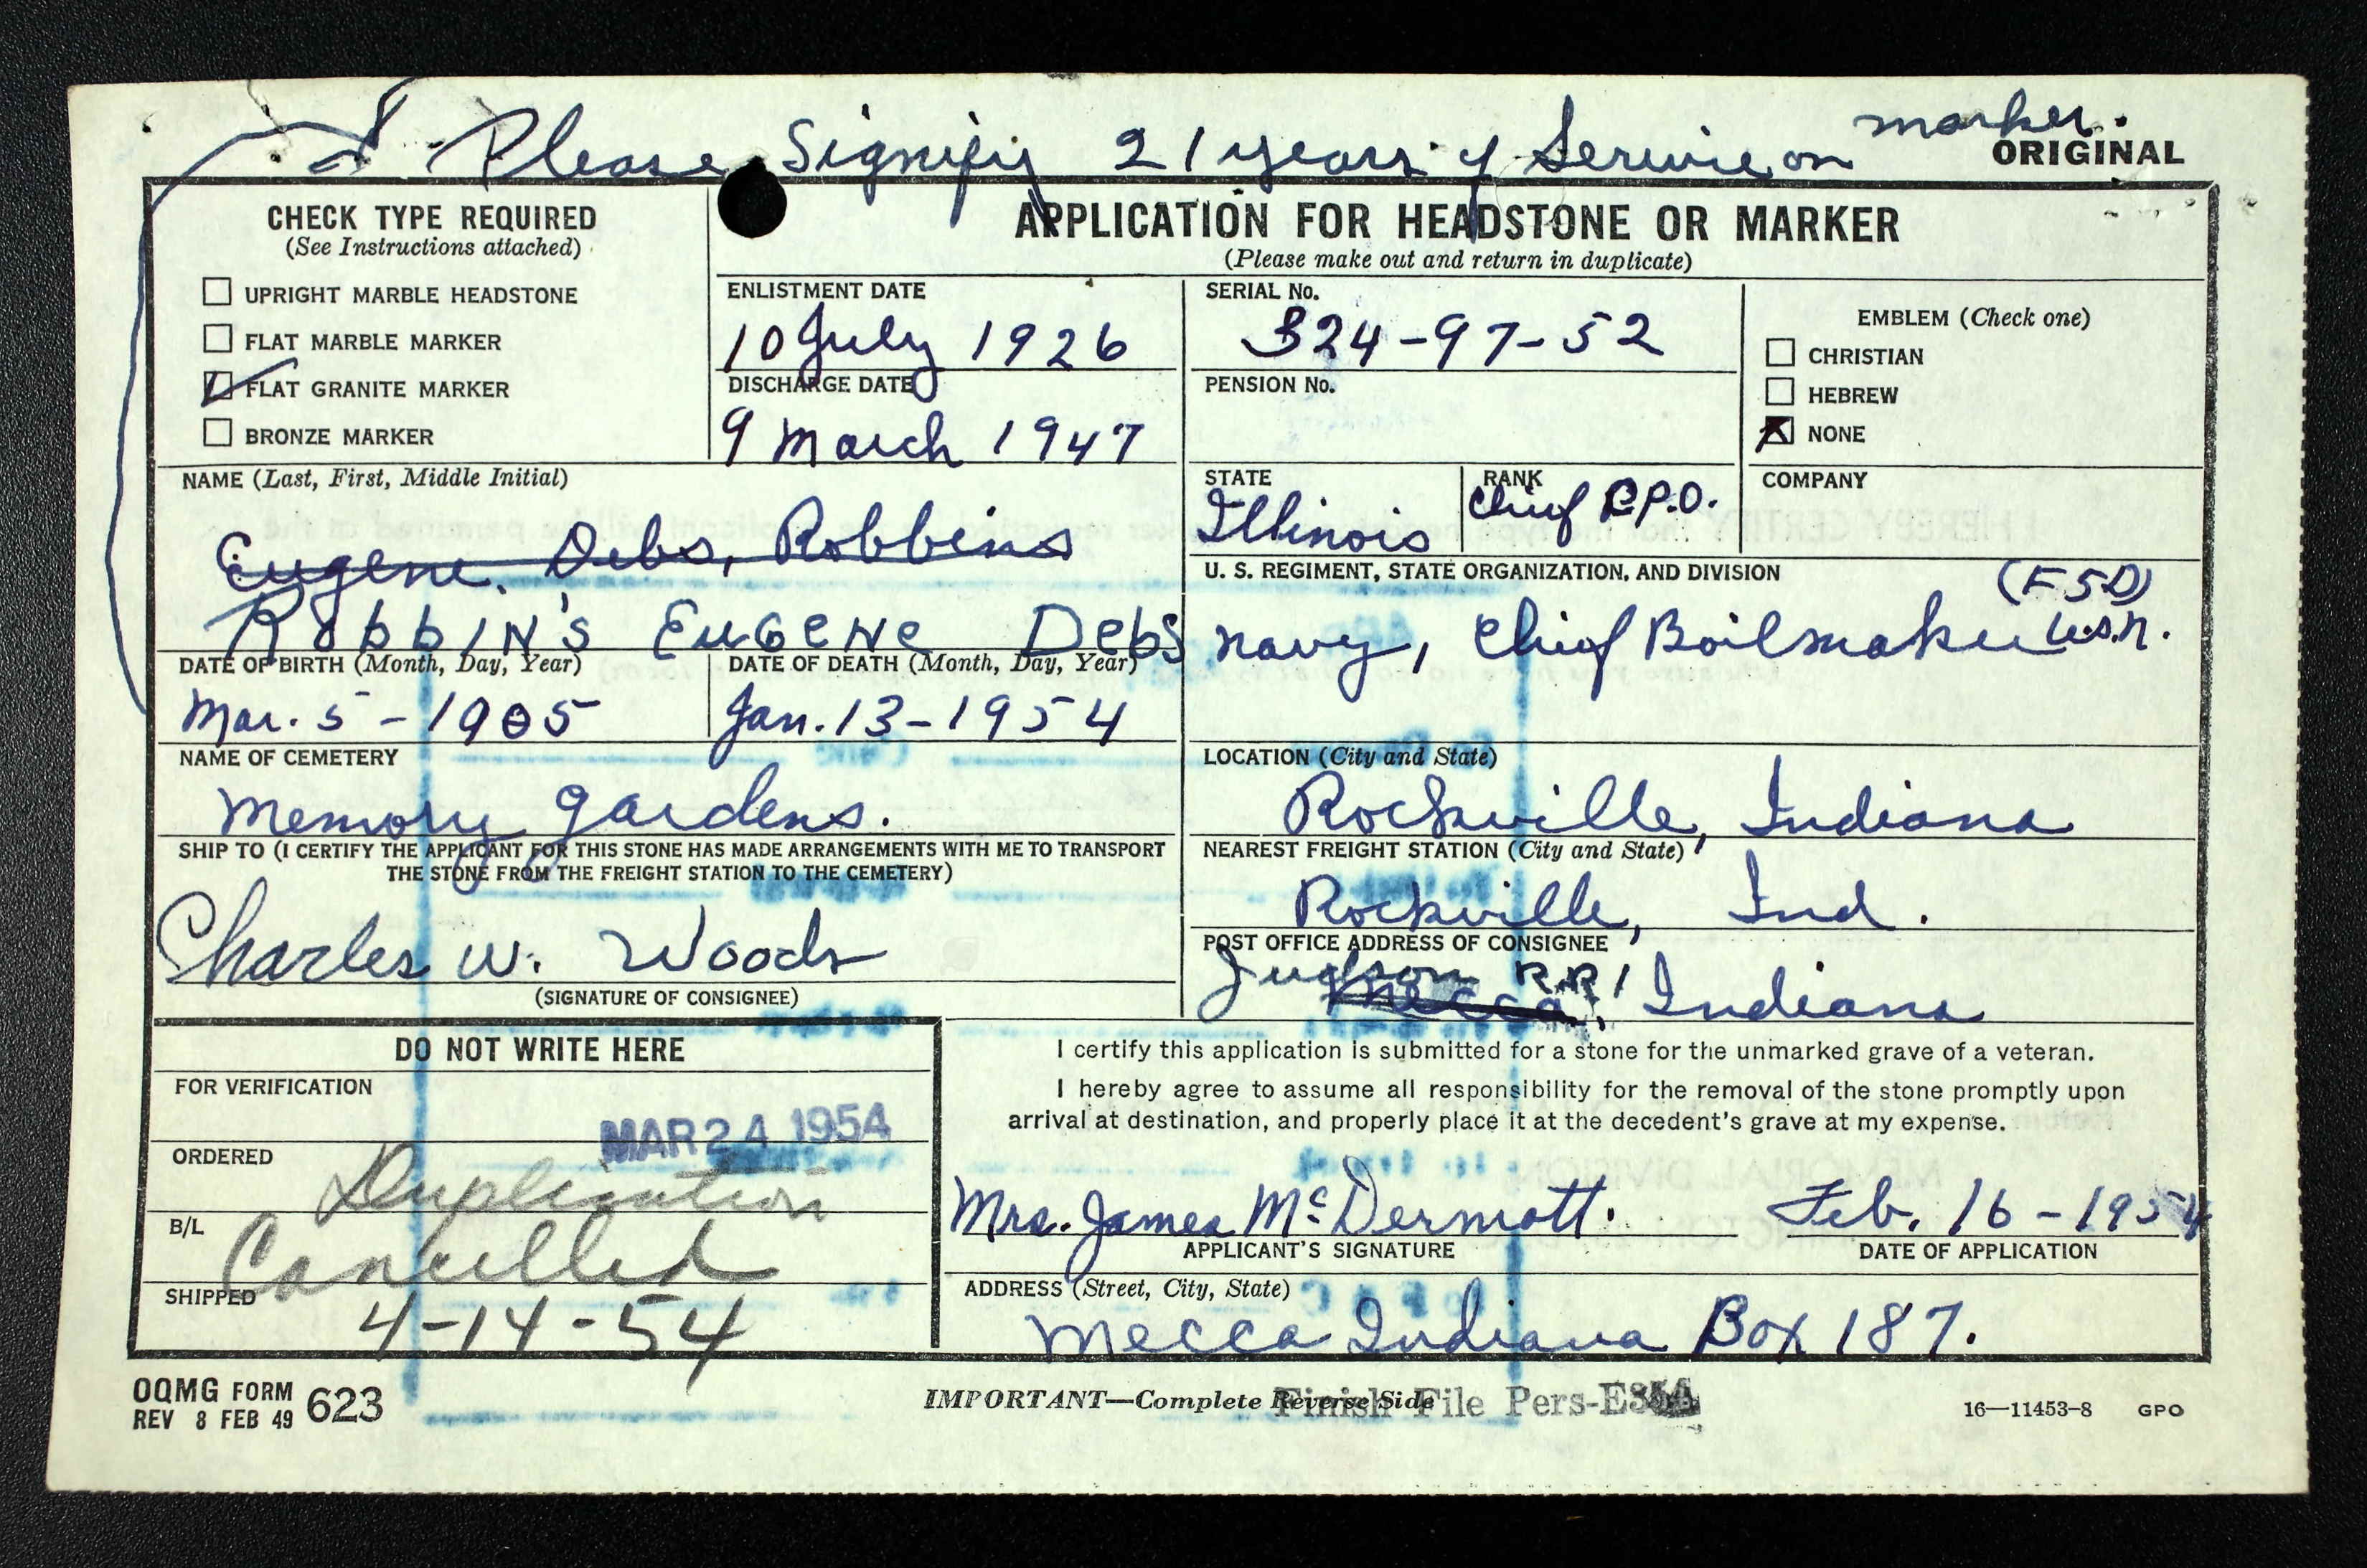 Please Signify 21 years of Service on marker.
ORIGINAL
CHECK TYPE REQUIRED
(See Instructions attached)
UPRIGHT MARBLE HEADSTONE
FLAT MARBLE MARKER
FLAT GRANITE MARKER
BRONZE MARKER
APPLICATION FOR HEADSTONE OR MARKER
(Please make out and return in duplicate)
ENLISTMENT DATE
10 July 1926
DISCHARGE DATE
9 March 1947
SERIAL No.
324-97-52
PENSION No.
EMBLEM (Check one)
CHRISTIAN
HEBREW
NONE
NAME (Last, First, Middle Initial)
Eugene. Debs, Robbins
RobbIN's EuGeNe Debs
STATE
Illinois
RANK
Chief P.P.O.
COMPANY
U. S. REGIMENT, STATE ORGANIZATION, AND DIVISION
Navy, Chief Boilmaker U.S.N.
DATE OF BIRTH (Month, Day, Year)
Mar. 5 - 1905
DATE OF DEATH (Month, Day, Year)
Jan. 13-1954
NAME OF CEMETERY
Memory gardens.
LOCATION (City and State)
Rockville, Indiana
SHIP TO (I CERTIFY THE APPLICANT FOR THIS STONE HAS MADE ARRANGEMENTS WITH ME TO TRANSPORT
THE STONE FROM THE FREIGHT STATION TO THE CEMETERY)
Charles W. Woods
(SIGNATURE OF CONSIGNEE)
NEAREST FREIGHT STATION (City and State)
Rockville, Ind.
POST OFFICE ADDRESS OF CONSIGNEE
Judson R.R.1
Mecca, Indiana
DO NOT WRITE HERE
FOR VERIFICATION
MAR 24 1954
ORDERED
Duplication
B/L
Cancelled
SHIPPED
4-14-54
I certify this application is submitted for a stone for the unmarked grave of a veteran.
I hereby agree to assume all responsibility for the removal of the stone promptly upon
arrival at destination, and properly place it at the decedent's grave at my expense.
Mrs. James McDermott. Feb. 16 - 1954
APPLICANT'S SIGNATURE DATE OF APPLICATION
ADDRESS (Street, City, State)
Mecca Indiana Box 187.
OQMG FORM 623
REV 8 FEB 49
IMPORTANT—Complete Reverse Side
Finish File Pers-E35A
16—11453-8 GPO